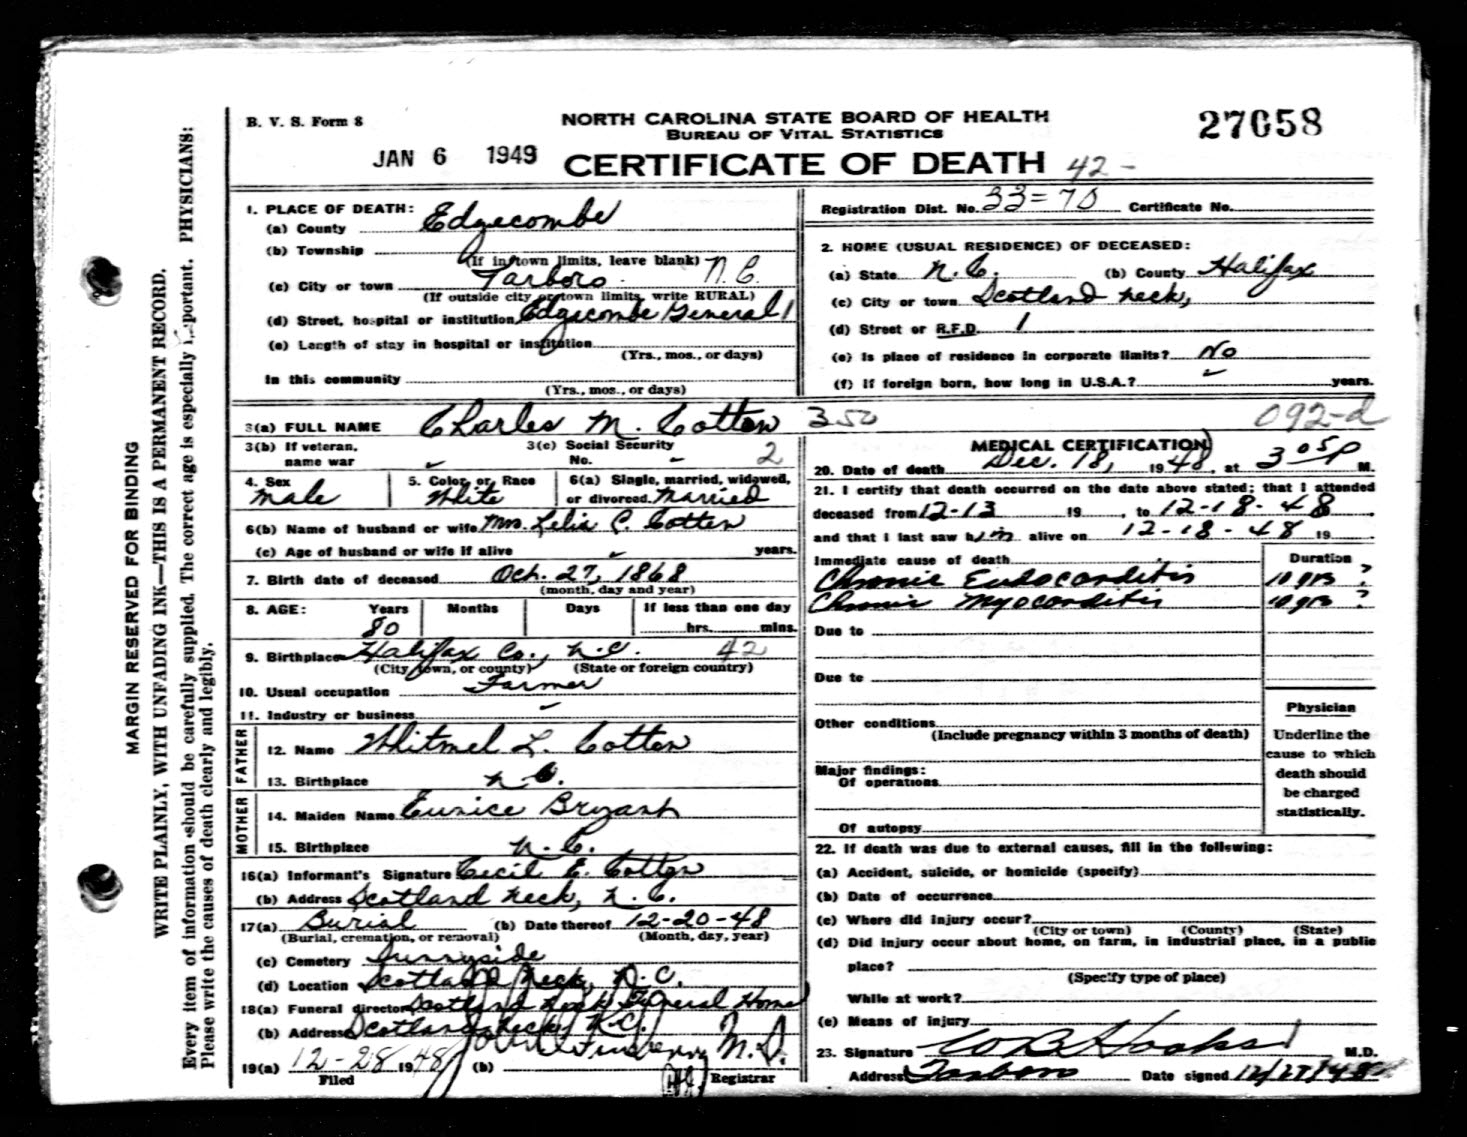 B. V. S. Form 8
NORTH CAROLINA STATE BOARD OF HEALTH
BUREAU OF VITAL STATISTICS
27658
JAN 6 1949
CERTIFICATE OF DEATH 42-
MARGIN RESERVED FOR BINDING
WRITE PLAINLY, WITH UNFADING INK—THIS IS A PERMANENT RECORD.
Every item of information should be carefully supplied. The correct age is especially important. PHYSICIANS:
Please write the causes of death clearly and legibly.
1. PLACE OF DEATH:
(a) County Edgecombe
(b) Township
(If in town limits, leave blank)
(c) City or town Tarboro N.C.
(If outside city or town limits, write RURAL)
(d) Street, hospital or institution Edgecombe General
(e) Length of stay in hospital or institution
(Yrs., mos., or days)
In this community
(Yrs., mos., or days)
Registration Dist. No. 33=70 Certificate No.
2. HOME (USUAL RESIDENCE) OF DECEASED:
(a) State N.C. (b) County Halifax
(c) City or town Scotland Neck,
(d) Street or R.F.D. 1
(e) Is place of residence in corporate limits? No
(f) If foreign born, how long in U.S.A.? years.
3(a) FULL NAME Charles M. Cotten 350
092-d
3(b) If veteran, name war
3(c) Social Security No. - 2
4. Sex Male
5. Color or Race White
6(a) Single, married, widowed, or divorced Married
6(b) Name of husband or wife Mrs. Lelia C. Cotten
(c) Age of husband or wife if alive years.
7. Birth date of deceased Oct. 27, 1868
(month, day and year)
8. AGE: Years Months Days If less than one day
80 hrs. mins.
9. Birthplace Halifax Co., N.C. 42
(City, town, or county) (State or foreign country)
10. Usual occupation Farmer
11. Industry or business
FATHER
12. Name Whitmel L. Cotten
13. Birthplace N.C.
MOTHER
14. Maiden Name Eunice Bryant
15. Birthplace N.C.
16(a) Informant's Signature Cecil E. Cotten
(b) Address Scotland Neck, N.C.
17(a) Burial (b) Date thereof 12-20-48
(Burial, cremation, or removal) (Month, day, year)
(c) Cemetery Sunnyside
(d) Location Scotland Neck, N.C.
18(a) Funeral director Scotland Neck Funeral Home
(b) Address Scotland Neck, N.C.
19(a) 12-28 1948 (b) M.D.
Filed Registrar
MEDICAL CERTIFICATION
20. Date of death Dec. 18, 1948, at 3 05 P M.
21. I certify that death occurred on the date above stated; that I attended
deceased from 12-13 19 , to 12-18-48
and that I last saw him alive on 12-18-48 19
Immediate cause of death Duration
Chronic Endocarditis 10 yrs ?
Chronic Myocarditis 10 yrs ?
Due to
Due to
Other conditions
(Include pregnancy within 3 months of death)
Major findings:
Of operations
Of autopsy
Physician
Underline the
cause to which
death should
be charged
statistically.
22. If death was due to external causes, fill in the following:
(a) Accident, suicide, or homicide (specify)
(b) Date of occurrence
(c) Where did injury occur?
(City or town) (County) (State)
(d) Did injury occur about home, on farm, in industrial place, in a public
place?
(Specify type of place)
While at work?
(e) Means of injury
23. Signature W B Hooks M.D.
Address Tarboro Date signed 12/27/48